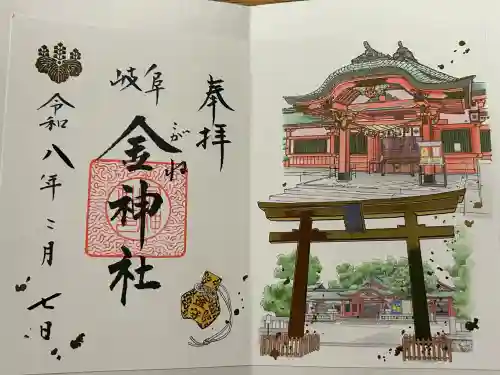 奉拝
岐阜
がね
金神社
令和八年二月七日